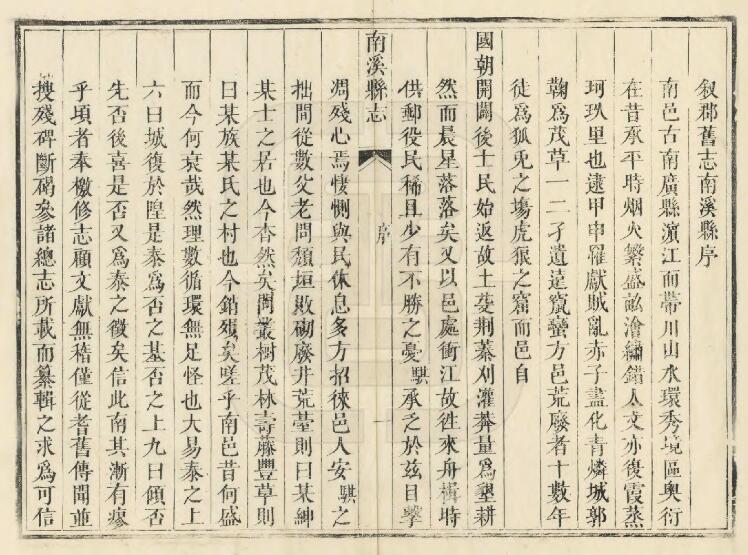 叙郡舊志南溪縣序
南邑古南廣縣濵江而帶川山水環秀境區奥衍
在昔承平時烟火繁盛畝澮繡錯人文亦復霞蒸
珂玖里也逮甲申罹獻賊亂赤子盡化青燐城郭
鞠爲茂草一二孑遺逺竄蠻方邑荒廢者十數年
徒爲狐兎之塲虎狼之窟而邑自
國朝開闢後士民始返故土芟荆蓁刈灌莽量爲墾耕
然而晨星落落矣又以邑處衝江故徃來舟楫時
供郵役民稀且少有不勝之憂騏承乏於兹目擊
南溪縣志
序
一
凋殘心焉悽惻與民休息多方招徠邑人安騏之
拙間從數父老問頽垣敗砌廢井荒臺則曰某紳
某士之居也今杳然矣問叢樹茂林壽藤豐草則
曰某族某氏之村也今銷殞矣嗟乎南邑昔何盛
而今何衰哉然理數循環無足怪也大易泰之上
六曰城復於隍是泰爲否之基否之上九曰傾否
先否後喜是否又爲泰之徵矣信此南其漸有瘳
乎頃者奉檄修志顧文獻無稽僅從耆舊傳聞並
搜殘碑斷碣參諸總志所載而纂輯之求爲可信